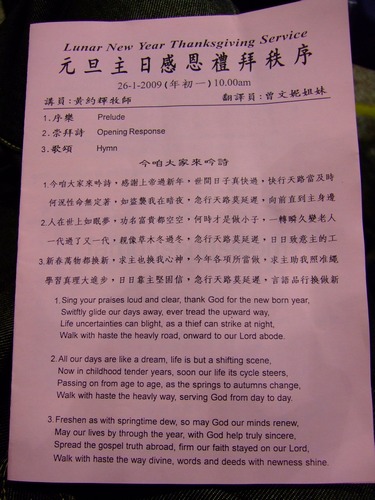 Lunar New Year Thanksgiving Service
元旦主日感恩禮拜秩序
26-1-2009 (年初一) 10.00am
講員:黃約輝牧師 翻譯員:曾文妮姐妹
1.序樂 Prelude
2.崇拜詩 Opening Response
3.歌頌 Hymn
今咱大家來吟詩
1.今咱大家來吟詩,感謝上帝過新年,世間日子真快過,快行天路當及時
何況性命無定著,如盜襲我在暗夜,急行天路莫延遲,向前直到主身邊
2.人在世上如眠夢,功名富貴都空空,何時才是做小子,一轉瞬久變老人
一代過了又一代,親像草木冬過冬,急行天路莫延遲,日日致意主的工
3.新春萬物都換新,求主也換我心神,今年各項所當做,求主助我照准繩
學習真理大進步,日日靠主堅固信,急行天路莫延遲,言語品行換做新
1.Sing your praises loud and clear, thank God for the new born year,
Swiftly glide our days away, ever tread the upward way,
Life uncertainties can blight, as a thief can strike at night,
Walk with haste the heavly road, onward to our Lord abode.
2.All our days are like a dream, life is but a shifting scene,
Now in childhood tender years, soon our life its cycle steers,
Passing on from age to age, as the springs to autumns change,
Walk with haste the heavly way, serving God from day to day.
3.Freshen as with springtime dew, so may God our minds renew,
May our lives by through the year, with God help truly sincere,
Spread the gospel truth abroad, firm our faith stayed on our Lord,
Walk with haste the way divine, words and deeds with newness shine.